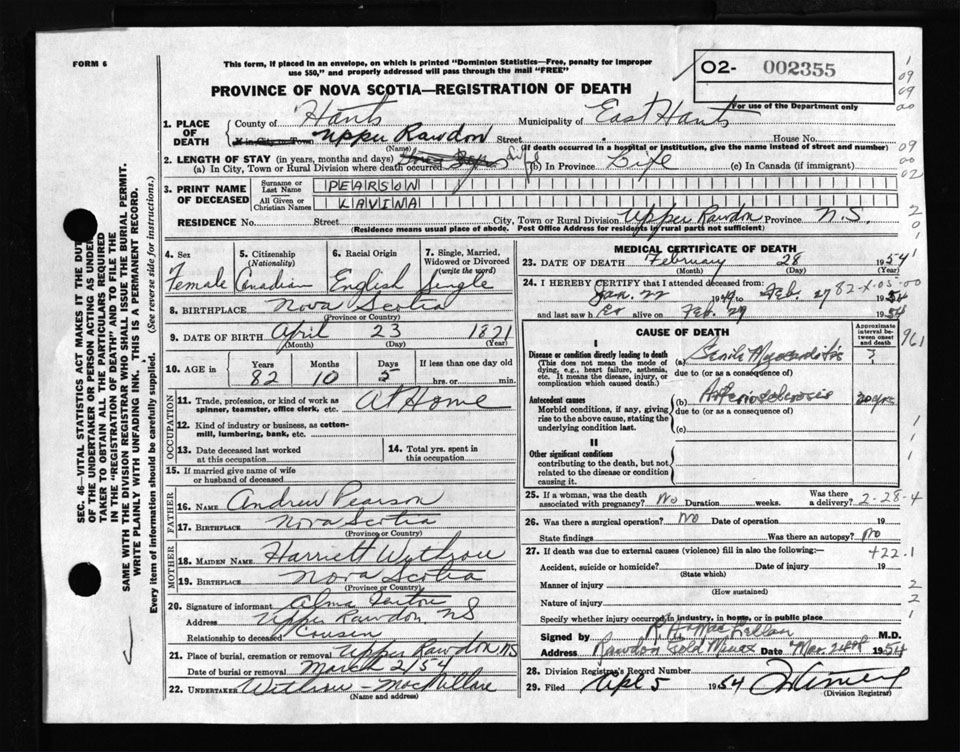 FORM 6
This form, if placed in an envelope, on which is printed "Dominion Statistics—Free, penalty for improper
use $50," and properly addressed will pass through the mail "FREE"
O2- 002355
For use of the Department only
PROVINCE OF NOVA SCOTIA—REGISTRATION OF DEATH
1. PLACE OF DEATH
County of Hants Municipality of East Hants
If in City or Town Upper Rawdon Street House No.
(Name) (If death occurred in a hospital or institution, give the name instead of street and number)
2. LENGTH OF STAY (in years, months and days)
(a) In City, Town or Rural Division where death occurred Life (b) In Province Life (c) In Canada (if immigrant)
3. PRINT NAME OF DECEASED
Surname or Last Name PEARSON
All Given or Christian Names LAVINA
RESIDENCE No. Street City, Town or Rural Division Upper Rawdon Province N.S.
(Residence means usual place of abode. Post Office Address for residents in rural parts not sufficient)
4. Sex Female
5. Citizenship (Nationality) Canadian
6. Racial Origin English
7. Single, Married, Widowed or Divorced (write the word) Single
8. BIRTHPLACE Nova Scotia
(Province or Country)
9. DATE OF BIRTH April 23 1871
(Month) (Day) (Year)
10. AGE in Years 82 Months 10 Days 5 If less than one day old hrs. or min.
OCCUPATION
11. Trade, profession, or kind of work as spinner, teamster, office clerk, etc. At Home
12. Kind of industry or business, as cotton-mill, lumbering, bank, etc.
13. Date deceased last worked at this occupation
14. Total yrs. spent in this occupation
15. If married give name of wife or husband of deceased
FATHER
16. NAME Andrew Pearson
17. BIRTHPLACE Nova Scotia
(Province or Country)
MOTHER
18. MAIDEN NAME Harriett Wythrow
19. BIRTHPLACE Nova Scotia
(Province or Country)
20. Signature of informant Alma
Address Upper Rawdon NS
Relationship to deceased Cousin
21. Place of burial, cremation or removal Upper Rawdon NS
Date of burial or removal March 2/54
22. UNDERTAKER Withrow - MacMillan
(Name and address)
MEDICAL CERTIFICATE OF DEATH
23. DATE OF DEATH February 28 1954
(Month) (Day) (Year)
24. I HEREBY CERTIFY that I attended deceased from:
Jan. 22 1954 to Feb. 27 1954
and last saw her alive on Feb. 27 1954
82-X-05-00
CAUSE OF DEATH
Approximate interval between onset and death
I
Disease or condition directly leading to death
(This does not mean the mode of dying, e.g., heart failure, asthenia, etc. It means the disease, injury, or complication which caused death.)
(a) Senile Myocarditis ?
due to (or as a consequence of)
Antecedent causes
Morbid conditions, if any, giving rise to the above cause, stating the underlying condition last.
(b) Arteriosclerosis 20 yrs
due to (or as a consequence of)
(c)
II
Other significant conditions
contributing to the death, but not related to the disease or condition causing it.
25. If a woman, was the death associated with pregnancy? No Duration weeks. Was there a delivery? 2-28-4
26. Was there a surgical operation? No Date of operation 19
State findings Was there an autopsy? No
27. If death was due to external causes (violence) fill in also the following:— 422.1
Accident, suicide or homicide? Date of injury 19
(State which)
Manner of injury
(How sustained)
Nature of injury
Specify whether injury occurred in industry, in home, or in public place
Signed by R. H. MacLellan M.D.
Address Rawdon Gold Mines Date Mar. 1954
28. Division Registrar's Record Number
29. Filed Apl 5 1954
(Division Registrar)
SEC. 46—VITAL STATISTICS ACT MAKES IT THE DUTY
OF THE UNDERTAKER OR PERSON ACTING AS UNDER-
TAKER TO OBTAIN ALL THE PARTICULARS REQUIRED
IN THE "REGISTRATION OF DEATH" AND TO FILE THE
SAME WITH THE DIVISION REGISTRAR WHO SHALL ISSUE THE BURIAL PERMIT.
WRITE PLAINLY WITH UNFADING INK. THIS IS A PERMANENT RECORD.
Every item of information should be carefully supplied. (See reverse side for instructions.)
1
09
09
00
09
00
02
2
0
1
961
1
1
1
2
2
1